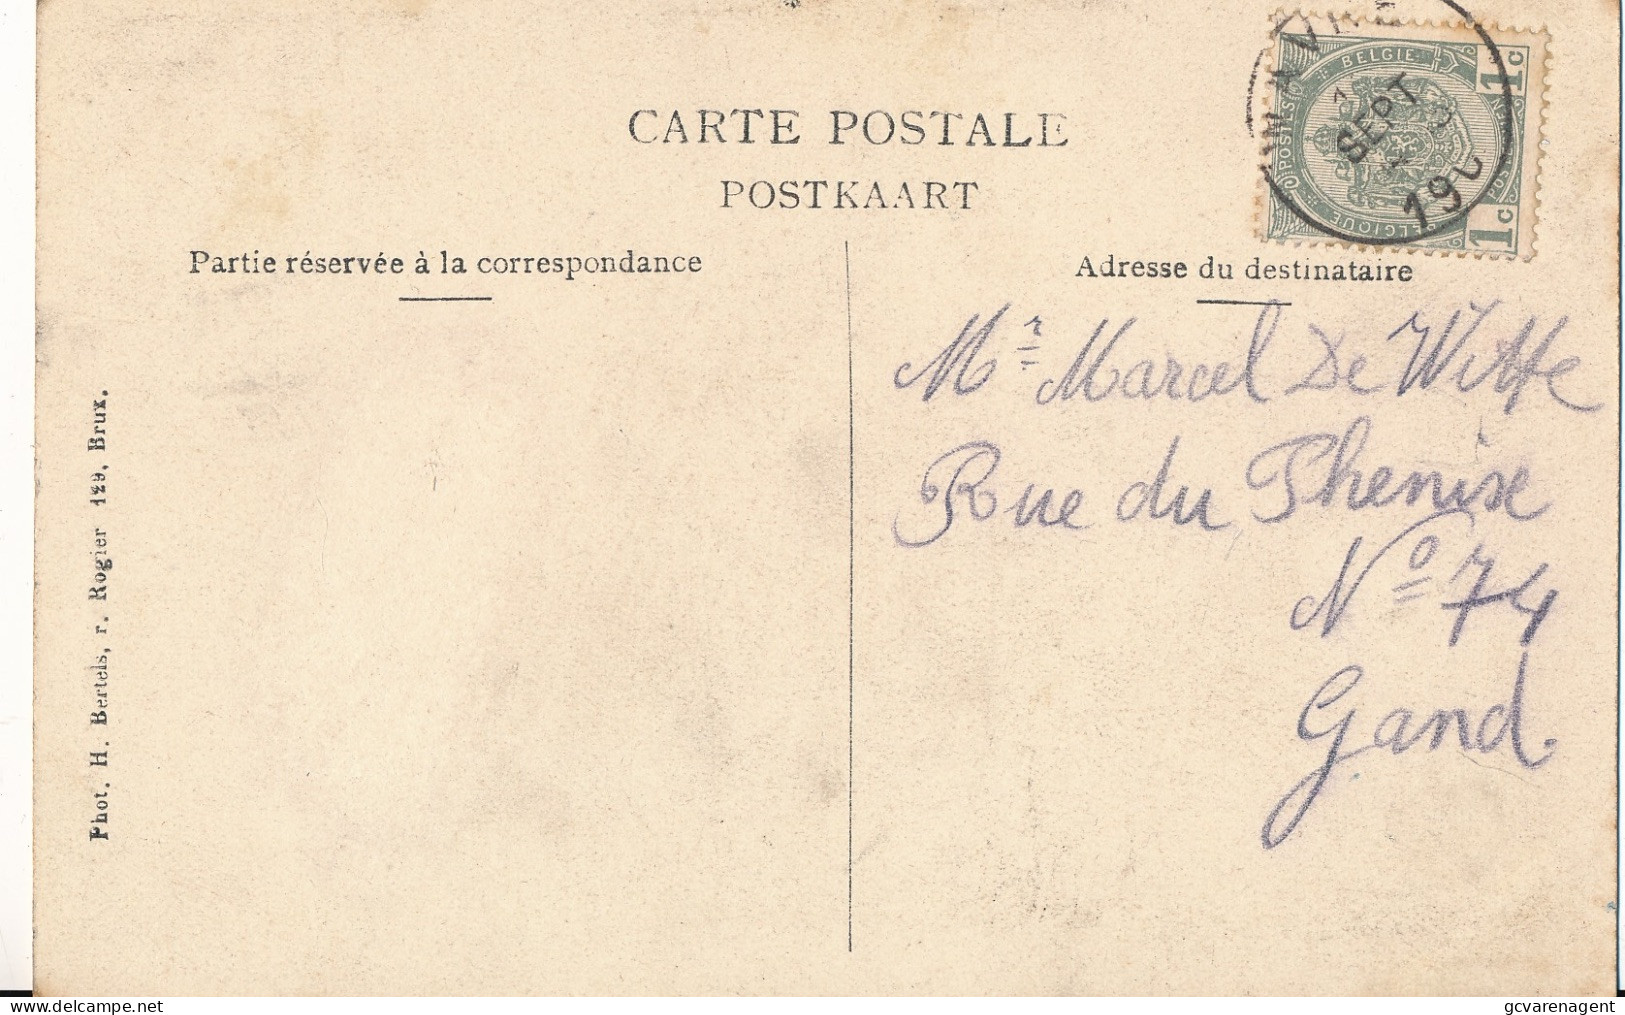 CARTE POSTALE
POSTKAART
Partie réservée à la correspondance
Adresse du destinataire
BELGIE
1c
POSTES
SEPT
190
BELGIQUE
1c
Mr Marcel De Witte
Rue du Phenix
No 74
Gand
Phot. H. Bertels, r. Rogier 129, Brux.
delcampe.net
gcvarenagent